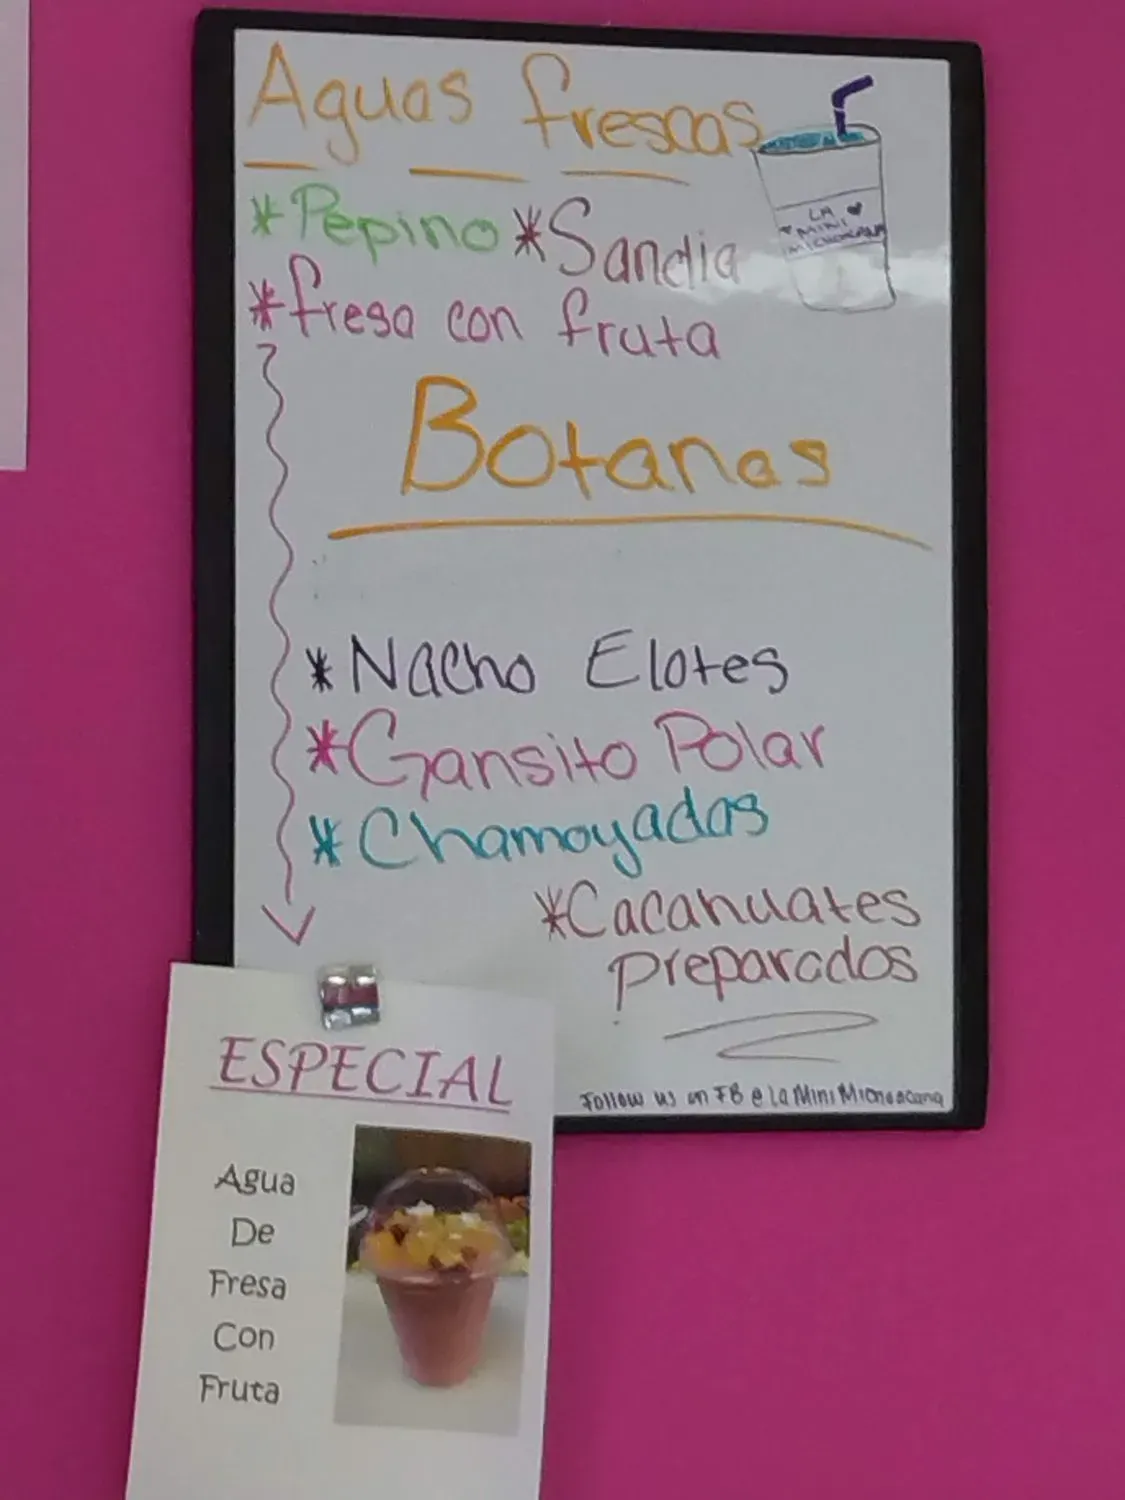 Aguas frescas
*Pepino *Sandia
*fresa con fruta
LA
MINI
MICHOACANA
Botanas
*Nacho Elotes
*Gansito Polar
*Chamoyadas
*Cacahuates
preparados
Follow us on FB @ La Mini Michoacana
ESPECIAL
Agua
De
Fresa
Con
Fruta